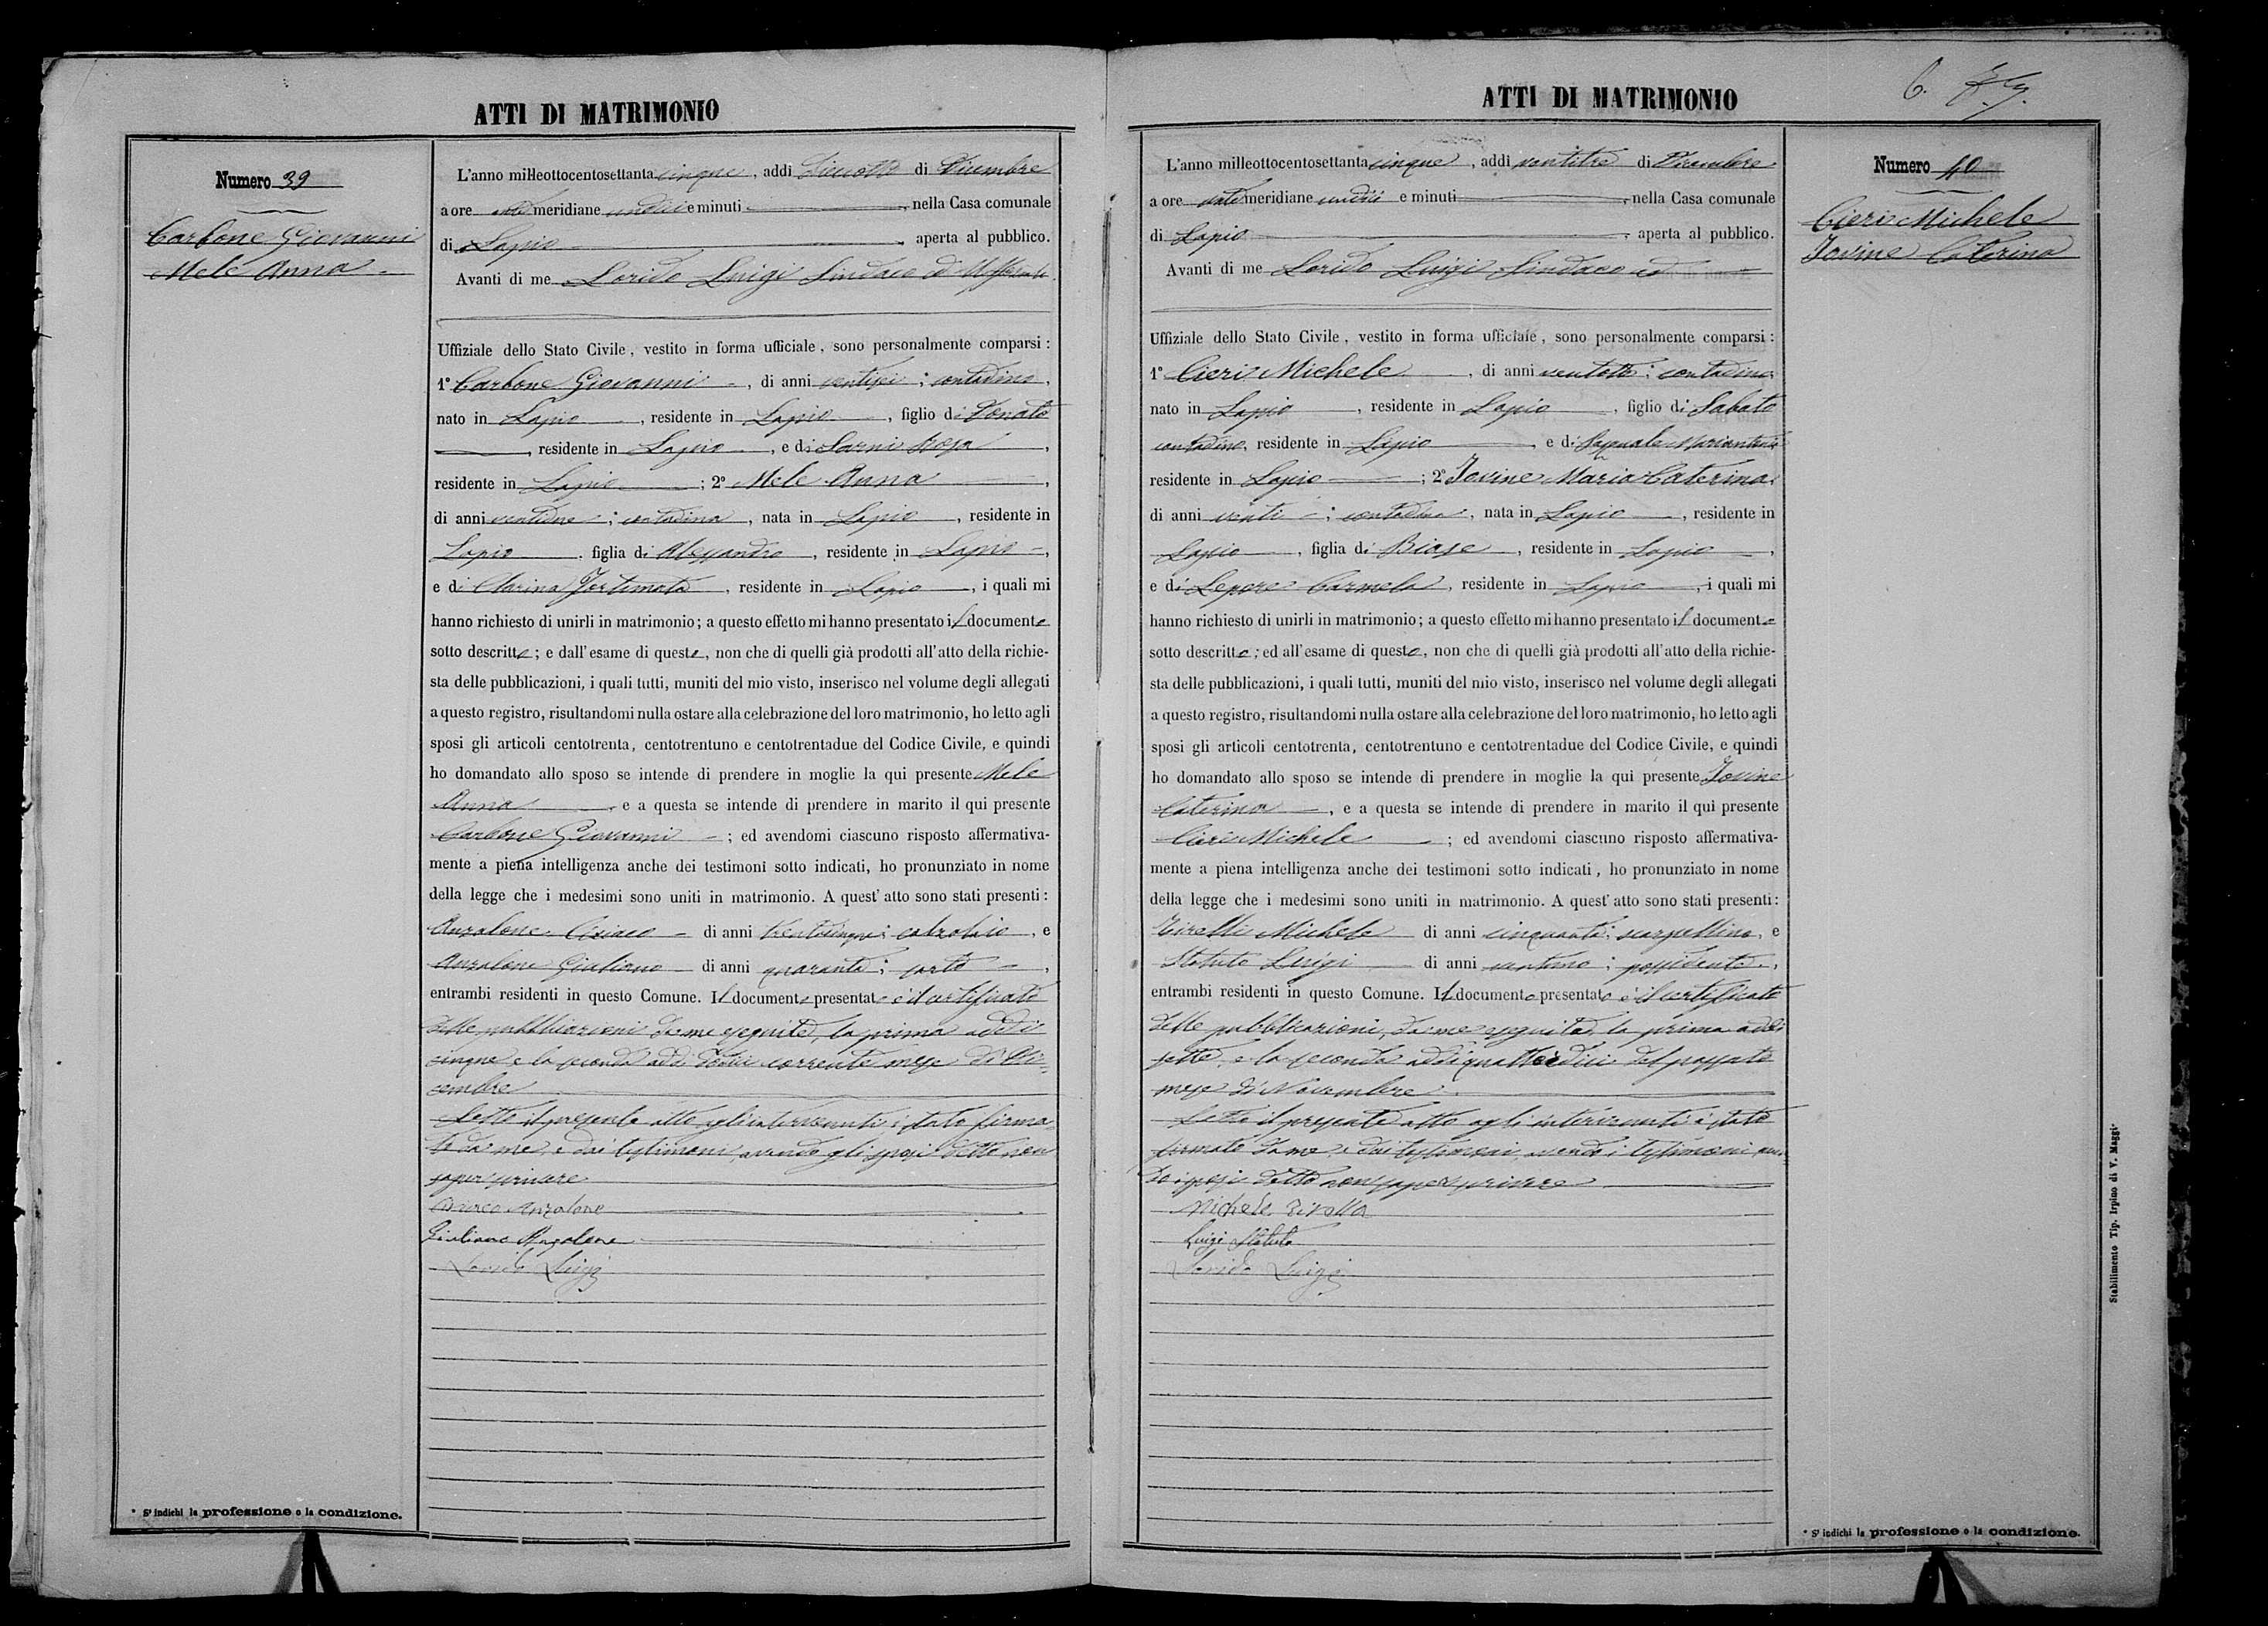 ATTI DI MATRIMONIO
Numero 39
Carbone Giovanni
Mele Anna
L'anno milleottocentosettanta cinque, addi dieciotto di Dicembre
a ore anti meridiane undici e minuti , nella Casa comunale
di Lapio . aperta al pubblico.
Avanti di me Lorido Luigi Sindaco ed
Uffiziale dello Stato Civile, vestito in forma ufficiale, sono personalmente comparsi:
1° Carbone Giovanni, di anni ventisei; contadino,
nato in Lapio, residente in Lapio, figlio di Donato
, residente in Lapio, e di Sarni Rosa,
residente in Lapio; 2° Mele Anna,
di anni ventidue; contadina, nata in Lapio, residente in
Lapio. figlia di Alessandro, residente in Lapio,
e di Clarina Fortunata, residente in Lapio, i quali mi
hanno richiesto di unirli in matrimonio; a questo effetto mi hanno presentato il documento
sotto descritto; e dall'esame di questo, non che di quelli già prodotti all'atto della richie-
sta delle pubblicazioni, i quali tutti, muniti del mio visto, inserisco nel volume degli allegati
a questo registro, risultandomi nulla ostare alla celebrazione del loro matrimonio, ho letto agli
sposi gli articoli centotrenta, centotrentuno e centotrentadue del Codice Civile, e quindi
ho domandato allo sposo se intende di prendere in moglie la qui presente Mele
Anna, e a questa se intende di prendere in marito il qui presente
Carbone Giovanni; ed avendomi ciascuno risposto affermativa-
mente a piena intelligenza anche dei testimoni sotto indicati, ho pronunziato in nome
della legge che i medesimi sono uniti in matrimonio. A quest'atto sono stati presenti:
Anzalone Ciriaco di anni trentacinque; calzolaio, e
Anzalone Giuliano di anni quaranta; sarto,
entrambi residenti in questo Comune. Il documento presentato è il certificato
delle pubblicazioni da me eseguite, la prima addi
cinque e la seconda addi dodici corrente mese di Di=
cembre
Letto il presente atto agli intervenuti è stato firma=
to da me, e dai testimoni, avendo gli sposi detto non
saper scrivere
Ciriaco Anzalone
Giuliano Anzalone
Lorido Luigi
* Si indichi la professione o la condizione.
ATTI DI MATRIMONIO
Numero 40
Cieri Michele
Iovine Caterina
L'anno milleottocentosettanta cinque, addi ventitre di Dicembre
a ore anti meridiane undici e minuti , nella Casa comunale
di Lapio . aperta al pubblico.
Avanti di me Lorido Luigi Sindaco ed
Uffiziale dello Stato Civile, vestito in forma ufficiale, sono personalmente comparsi:
1° Cieri Michele, di anni ventotto; contadino,
nato in Lapio, residente in Lapio, figlio di Sabato
contadino, residente in Lapio, e di Pasquale Mariantonia
residente in Lapio; 2° Iovine Maria Caterina,
di anni venti; contadina, nata in Lapio, residente in
Lapio, figlia di Biase, residente in Lapio,
e di Lepore Carmela, residente in Lapio, i quali mi
hanno richiesto di unirli in matrimonio; a questo effetto mi hanno presentato il documento
sotto descritto; ed all'esame di questo, non che di quelli già prodotti all'atto della richie-
sta delle pubblicazioni, i quali tutti, muniti del mio visto, inserisco nel volume degli allegati
a questo registro, risultandomi nulla ostare alla celebrazione del loro matrimonio, ho letto agli
sposi gli articoli centotrenta, centotrentuno e centotrentadue del Codice Civile, e quindi
ho domandato allo sposo se intende di prendere in moglie la qui presente Iovine
Caterina, e a questa se intende di prendere in marito il qui presente
Cieri Michele; ed avendomi ciascuno risposto affermativa-
mente a piena intelligenza anche dei testimoni sotto indicati, ho pronunziato in nome
della legge che i medesimi sono uniti in matrimonio. A quest'atto sono stati presenti:
Tirelli Michele di anni cinquanta; scarpellino, e
Statuto Luigi di anni ventuno; possidente,
entrambi residenti in questo Comune. Il documento presentato è il certificato
delle pubblicazioni, da me eseguite, la prima addi
sette, e la seconda addi quattordici del passato
mese di Novembre
Letto il presente atto agli intervenuti è stato
firmato da me, e dai testimoni, avendo i testimoni
sposi detto non saper scrivere
Michele
Luigi Statuto
Lorido Luigi
* Si indichi la professione o la condizione.
Stabilimento Tip. Irpino di V. Maggi